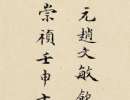 元趙文敏飲
崇禎壬申十